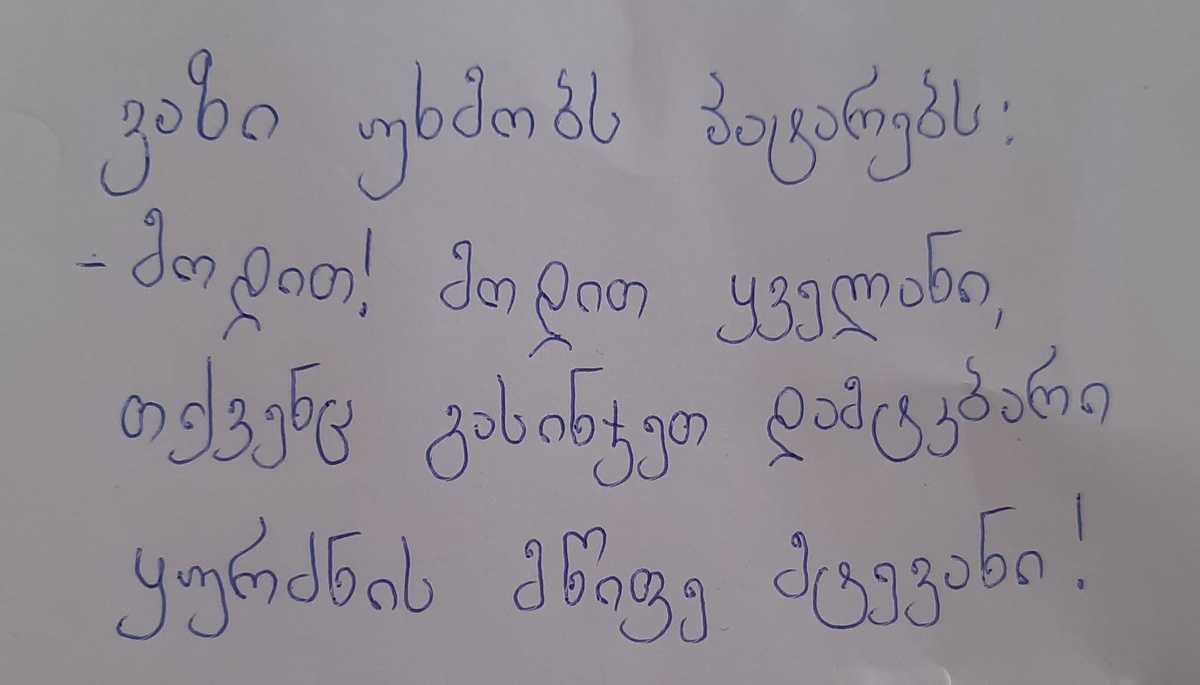 ვაზი უხმობს პატარებს:
- მოდით! მოდით ყველანი,
თქვენც გასინჯეთ დამტკბარი
ყურძნის მწიფე მტევანი!